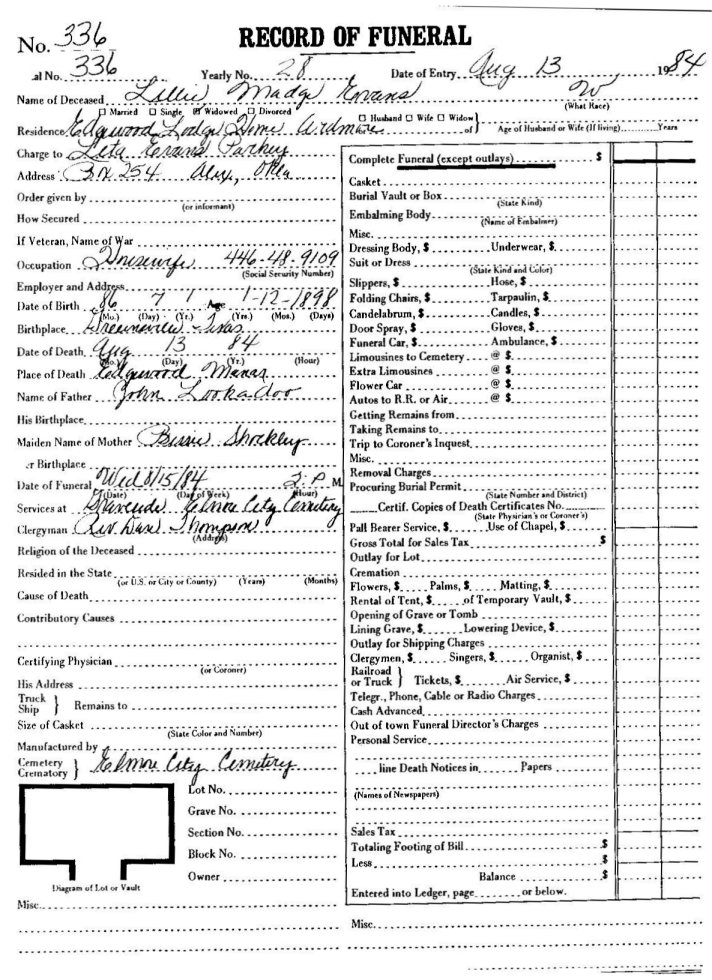 No. 336 RECORD OF FUNERAL
al No. 336 Yearly No. 28 Date of Entry Aug 13 1984
Name of Deceased Lillie Madge Evans W
(What Race)
☐ Married ☐ Single ☒ Widowed ☐ Divorced ☐ Husband ☐ Wife ☐ Widow
Residence Edgewood Lodge Home Ardmore of Age of Husband or Wife (If living) Years
Charge to Leta Evans Parkey
Address Bx 254 Alex, Okla
Order given by
(or informant)
How Secured
If Veteran, Name of War
Occupation Housewife 446-48-9109
(Social Security Number)
Employer and Address
Date of Birth 86 7 1 Age 1-12-1898
(Mo.) (Day) (Yr.) (Yrs.) (Mos.) (Days)
Birthplace Texas
Date of Death Aug 13 84
(Mo.) (Day) (Yr.) (Hour)
Place of Death Edgewood Manor
Name of Father John Lookadoo
His Birthplace
Maiden Name of Mother Bessie Shockley
er Birthplace
Date of Funeral Wed 8/15/84 2 P M.
(Date) (Day of Week) (Hour)
Services at Graveside Elmore City Cemetery
Clergyman Rev. Dave Thompson
(Address)
Religion of the Deceased
Resided in the State
(or U.S. or City or County) (Years) (Months)
Cause of Death
Contributory Causes
Certifying Physician
(or Coroner)
His Address
Truck
Ship } Remains to
Size of Casket
(State Color and Number)
Manufactured by
Cemetery
Crematory } Elmore City Cemetery
Lot No.
Grave No.
Section No.
Block No.
Owner
Diagram of Lot or Vault
Misc.
Complete Funeral (except outlays) $
Casket
Burial Vault or Box
(State Kind)
Embalming Body
(Name of Embalmer)
Misc.
Dressing Body, $ Underwear, $
Suit or Dress
(State Kind and Color)
Slippers, $ Hose, $
Folding Chairs, $ Tarpaulin, $
Candelabrum, $ Candles, $
Door Spray, $ Gloves, $
Funeral Car, $ Ambulance, $
Limousines to Cemetery @ $
Extra Limousines @ $
Flower Car @ $
Autos to R.R. or Air @ $
Getting Remains from
Taking Remains to
Trip to Coroner's Inquest
Misc.
Removal Charges
Procuring Burial Permit
(State Number and District)
Certif. Copies of Death Certificates No.
(State Physician's or Coroner's)
Pall Bearer Service, $ Use of Chapel, $
Gross Total for Sales Tax $
Outlay for Lot
Cremation
Flowers, $ Palms, $ Matting, $
Rental of Tent, $ of Temporary Vault, $
Opening of Grave or Tomb
Lining Grave, $ Lowering Device, $
Outlay for Shipping Charges
Clergymen, $ Singers, $ Organist, $
Railroad
or Truck } Tickets, $ Air Service, $
Telegr., Phone, Cable or Radio Charges
Cash Advanced
Out of town Funeral Director's Charges
Personal Service
line Death Notices in Papers
(Names of Newspapers)
Sales Tax
Totaling Footing of Bill $
Less $
Balance $
Entered into Ledger, page or below.
Misc.